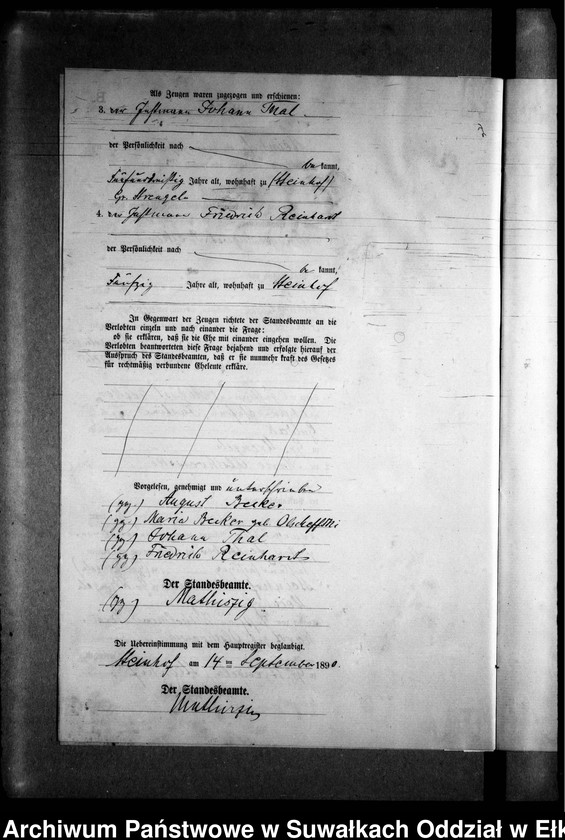 Als Zeugen waren zugezogen und erschienen:
3. der Instmann Johann Thal
der Persönlichkeit nach
be kannt,
Fünfunddreißig Jahre alt, wohnhaft zu (Steinhof)
Gr. Strengeln
4. der Instmann Friedrich Reinhart
der Persönlichkeit nach
be kannt,
Fünfzig Jahre alt, wohnhaft zu Steinhof
In Gegenwart der Zeugen richtete der Standesbeamte an die
Verlobten einzeln und nach einander die Frage:
ob sie erklären, daß sie die Ehe mit einander eingehen wollen. Die
Verlobten beantworteten diese Frage bejahend und erfolgte hierauf der
Ausspruch des Standesbeamten, daß er sie nunmehr kraft des Gesetzes
für rechtmäßig verbundene Eheleute erkläre.
Vorgelesen, genehmigt und unterschrieben
(gz.) August Becker
(gz.) Marie Becker geb.
(gz.) Johann Thal
(gz.) Friedrich Reinhardt
Der Standesbeamte.
(gz.) Mathiszig
Die Uebereinstimmung mit dem Hauptregister beglaubigt.
Steinhof am 14 ten September 1890.
Der Standesbeamte.
Mathiszig
Archiwum Państwowe w Suwałkach Oddział w Ełk